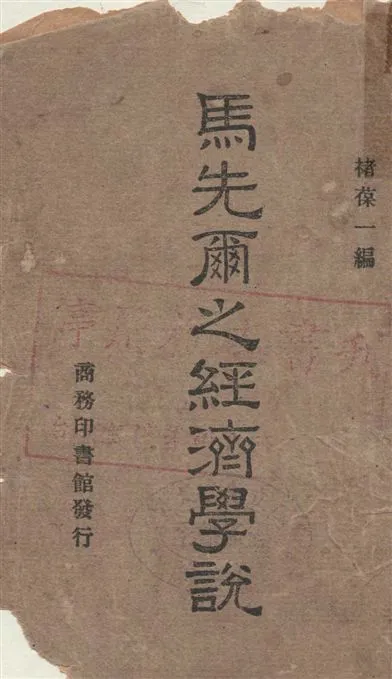 楮葆一編
馬先爾之經濟學說
商務印書館發行